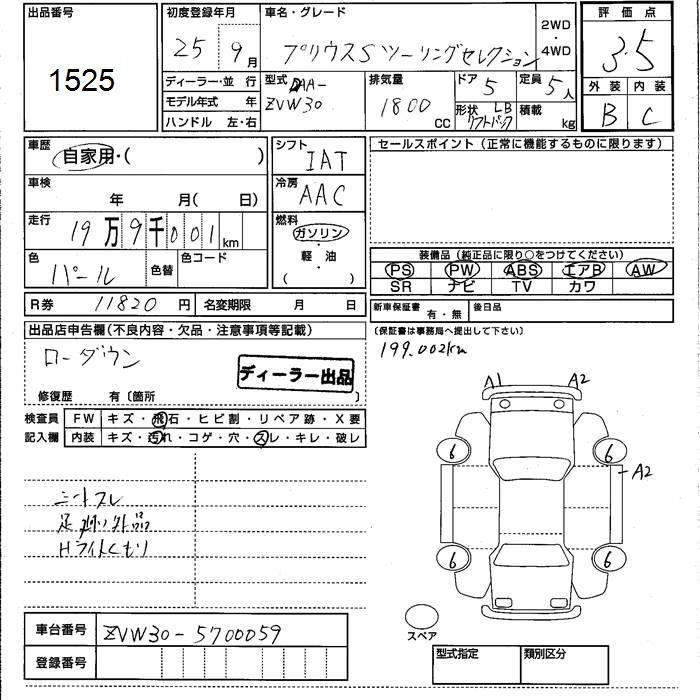 出品番号
1525
初度登録年月
25 9月
車名・グレード
プリウスSツーリングセレクション
2WD
・
4WD
評価点
3.5
外装 内装
B C
ディーラー・並行
モデル年式 年
ハンドル 左・右
型式 DAA-
ZVW30
排気量
1800 CC
ドア 5
定員 5人
形状 LB
リフトバック
積載 kg
車歴
自家用・( )
車検
年 月( 日)
走行
19万9千001km
色
パール
色替
色コード
シフト
IAT
冷房
AAC
燃料
ガソリン
・
軽油
( )
セールスポイント(正常に機能するものに限ります)
装備品(純正品に限り○をつけてください)
PS PW ABS エアB AW
SR ナビ TV カワ
R券 11820円
名変期限 月 日
新車保証書 有・無
後日品
(保証書は事務局へ提出して下さい)
199.002km
出品店申告欄(不良内容・欠品・注意事項等記載)
ローダウン
ディーラー出品
修復歴 有〔箇所 〕
検査員
記入欄
FW キズ・飛石・ヒビ割・リペア跡・X要
内装 キズ・汚れ・コゲ・穴・スレ・キレ・破レ
シートスレ
足廻り外品
Hライトくもり
A1
A2
6
6
A2
6
6
スペア
車台番号 ZVW30-5700059
登録番号
型式指定
類別区分